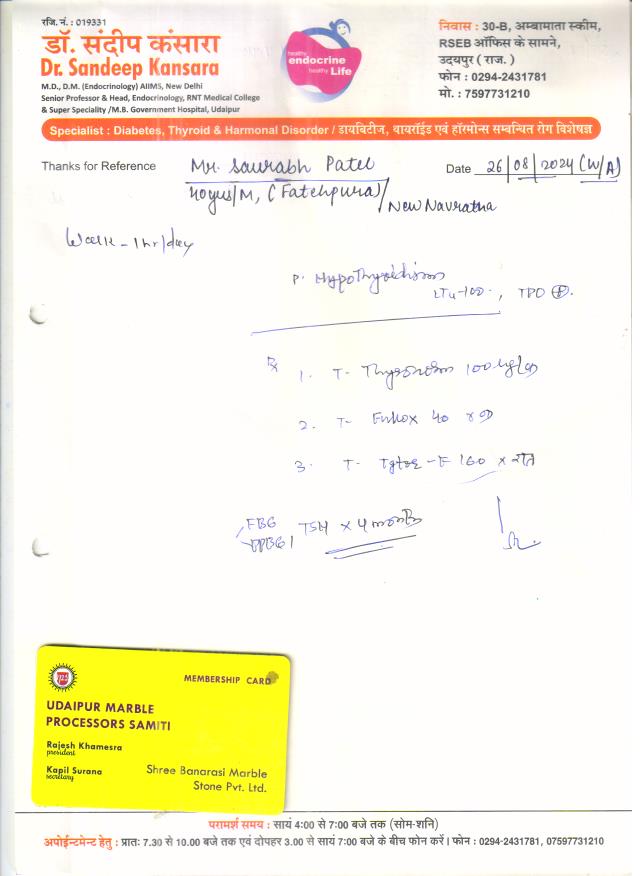 रजि. नं. : 019331
डॉ. संदीप कंसारा
Dr. Sandeep Kansara
M.D., D.M. (Endocrinology) AIIMS, New Delhi
Senior Professor & Head, Endocrinology, RNT Medical College
& Super Speciality /M.B. Government Hospital, Udaipur
healthy
endocrine
healthy Life
निवास : 30-B, अम्बामाता स्कीम,
RSEB ऑफिस के सामने,
उदयपुर ( राज. )
फोन : 0294-2431781
मो. : 7597731210
Specialist : Diabetes, Thyroid & Harmonal Disorder / डायबिटीज, थायरॉईड एवं हॉरमोन्स सम्बन्धित रोग विशेषज्ञ
Thanks for Reference Mr. Saurabh Patel Date 26/08/2024 (W/A)
40yrs/M, (Fatehpura)/
New Navratna
Walk - 1hr/day
P. Hypothyroidism
LT4-100, TPO ⊕.
Rx
1. T- Thyronorm 100
2. T- 40 x
3. T- -F 160 x रात
FBG
PPBG TSH x 4 months
MEMBERSHIP CARD
UDAIPUR MARBLE
PROCESSORS SAMITI
Rajesh Khamesra
president
Kapil Surana
secretary
Shree Banarasi Marble
Stone Pvt. Ltd.
परामर्श समय : सायं 4:00 से 7:00 बजे तक (सोम-शनि)
अपोईन्टमेन्ट हेतु : प्रातः 7.30 से 10.00 बजे तक एवं दोपहर 3.00 से सायं 7:00 बजे के बीच फोन करें। फोन : 0294-2431781, 07597731210